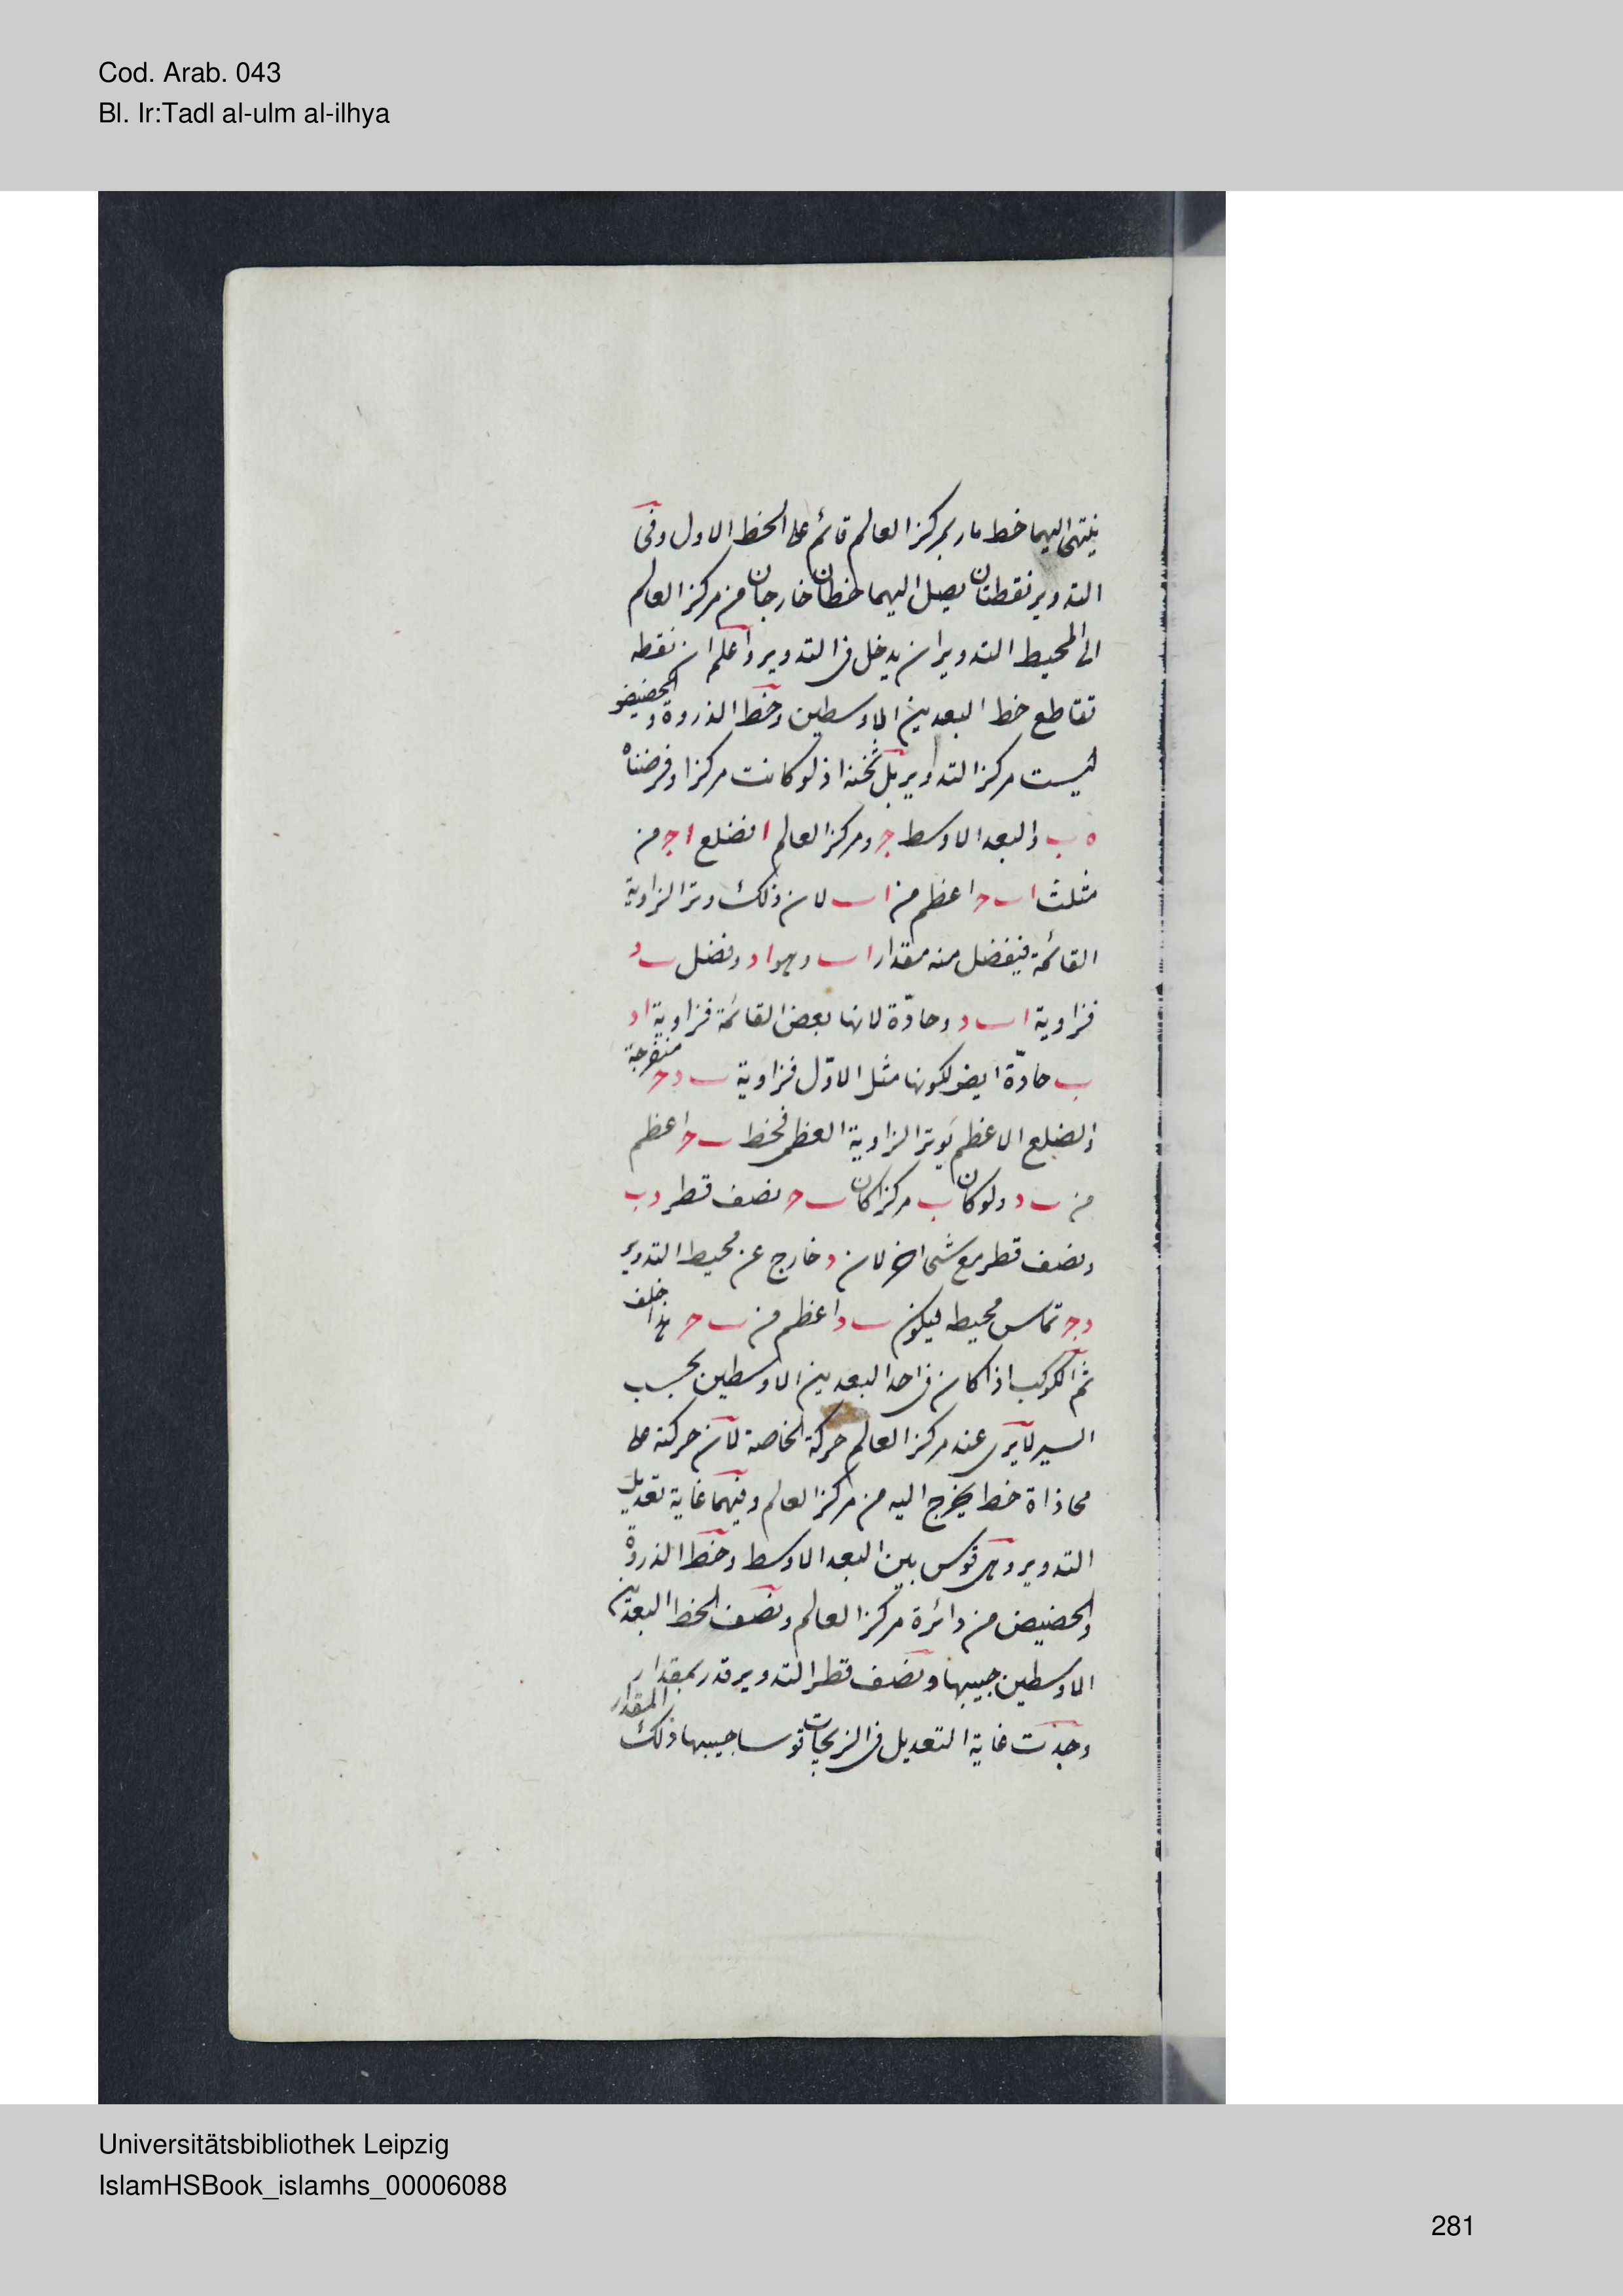 Cod. Arab. 043
Bl. Ir:Tadl al-ulm al-ilhya
ينتهى اليهما خط مار بمركز العالم قائم على الخط الاول وفى
التدوير نقطتان يصل اليهما خطان خارجان من مركز العالم
الى المحيط التدوير ان يدخل فى التدوير واعلم ان نقطه
تقاطع خط البعدين الاوسطين وخط الذروة والحضيض
ليست مركز التداوير بل تحته اذ لو كانت مركزا وفرضناه
ه ب والبعد الاوسط ج ومركز العالم ا فضلع ا ج من
مثلث ا ب ح اعظم من ا ب لان ذلك وتر الزاوية
القائمة فيفضل منه مقدار ا ب وهو ا د وفضل ب د
فزاوية ا ب د وحادّة لانها بعض القائمة فزاوية ا د
ب حادّة ايضو لكونها مثل الاوّل فزاوية ب د ح منفرجة
والضلع الاعظم يوتر الزاوية العظمى فخط ب ح اعظم
من ب د ولو كان ب مركزا كان ب ح نصف قطر و د ب
ونصف قطر مع شى اخر لان د خارج عن محيط التدوير
و ج تماس محيطه فيكون ب د اعظم من ب ح هذا خلف
ثم الكوكب اذا كان فى احد البعدين الاوسطين بحسب
السير لايرى عند مركز العالم حركة الخاصة لان حركته على
محاذاة خط يخرج اليه من مركز العالم وفيهما غاية تعديل
التدوير وهى قوس بين البعد الاوسط وخط الذروة
والحضيض من دائرة مركز العالم ونصف الخط البعدين
الاوسطين جيبها ونصف قطر التدوير قدر بمقدار
وجدت غاية التعديل فى الزيجات قوسا جيبها ذلك المقدار
Universitätsbibliothek Leipzig
IslamHSBook_islamhs_00006088
281